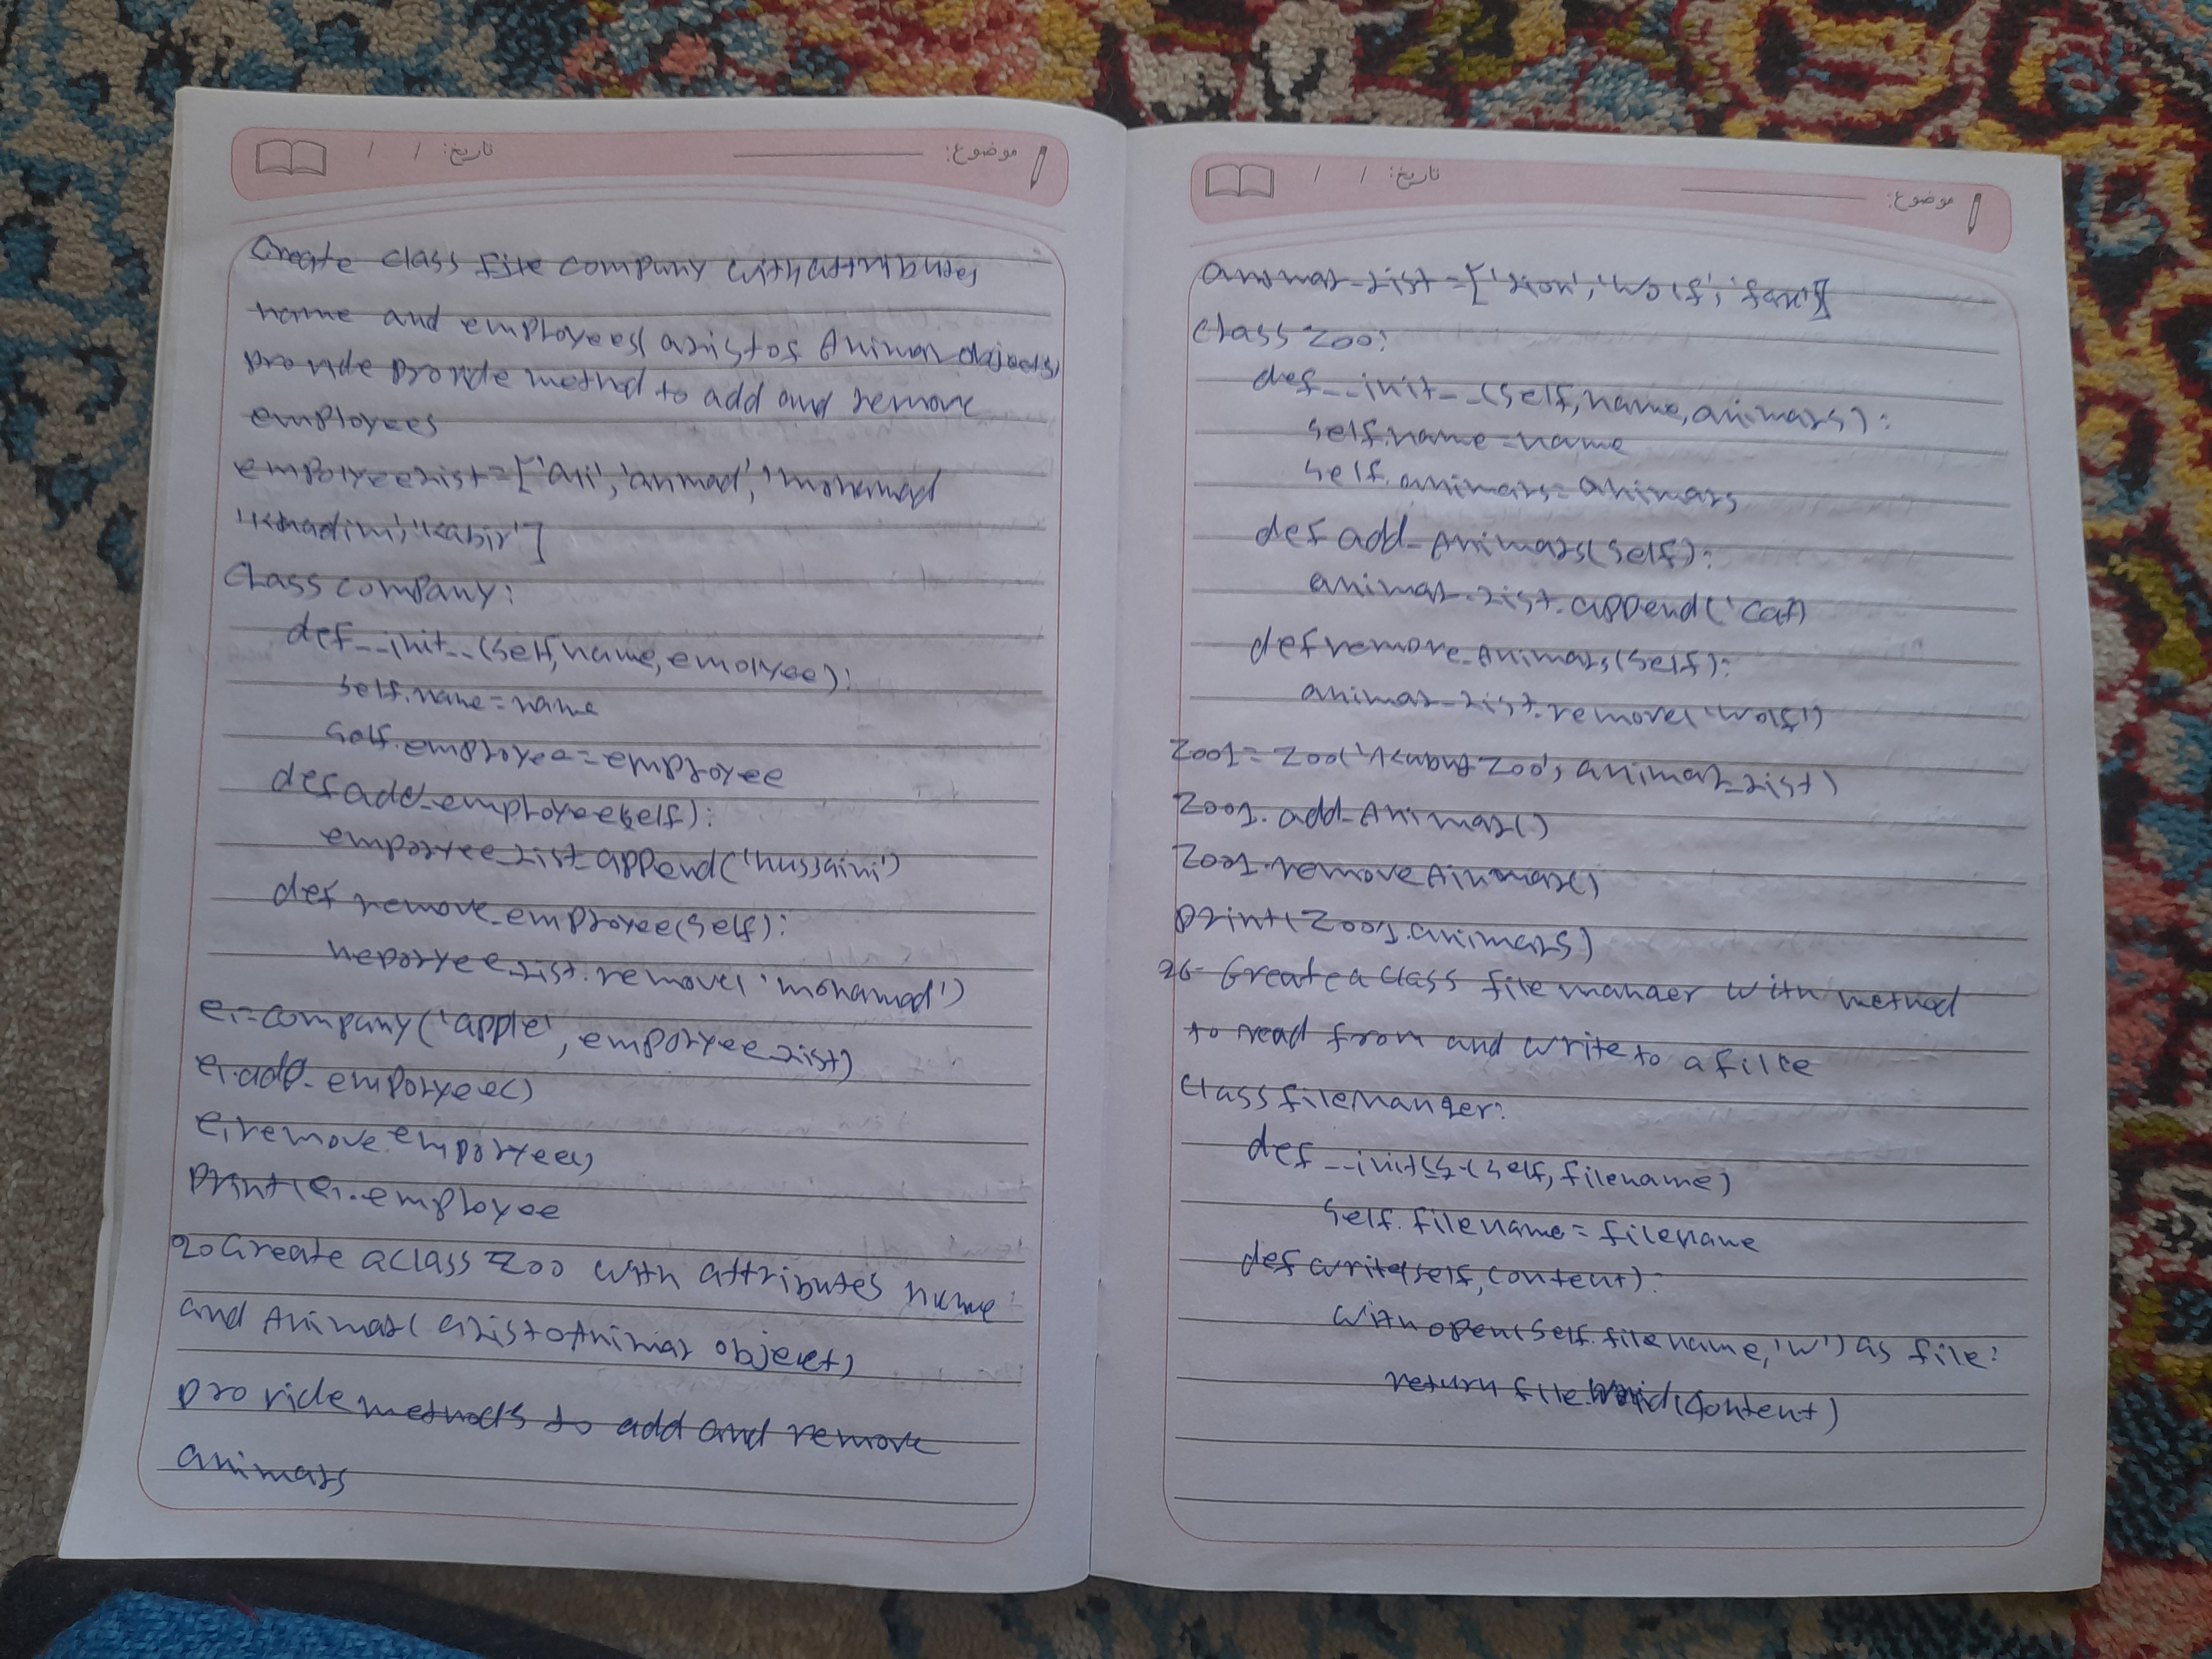 تاریخ: / / موضوع:
Create class file company with attributes
name and employees a list of Animal objects
provide provide method to add and remove
employees
employee_list=['Ali','ahmad','mohamad
class company:
def__init__(self,name,emolyee):
self.name=name
self.employee=employee
def add_employee(self):
employee_list.append('hussaini')
def remove_employee(self):
employee_list.remove('mohamad')
e1=company('apple',employee_list)
e1.add.employee()
e1.remove.employees
print(e1.employee
20Create aclass Zoo with attributes name
and Animal( a list of animal object)
provide methods to add and remove
animals
تاریخ: / / موضوع:
animal_list=['lion','wolf',
class zoo:
def__init__(self,name,animals):
self.name=name
self.animals=animals
def add_Animals(self):
animal_list.append('cat')
def remove_Animals(self):
animal_list.remove('wolf')
animal_list)
Zoo1.add_Animal()
Zoo1.remove Animal()
print(Zoo1.animals)
Create a class file manager with method
to read from and write to a file
class filemanger:
def __init__(self,filename)
self.filename=filename
def write(self,content):
with open(self.filename,'w')as file:
return file (content)